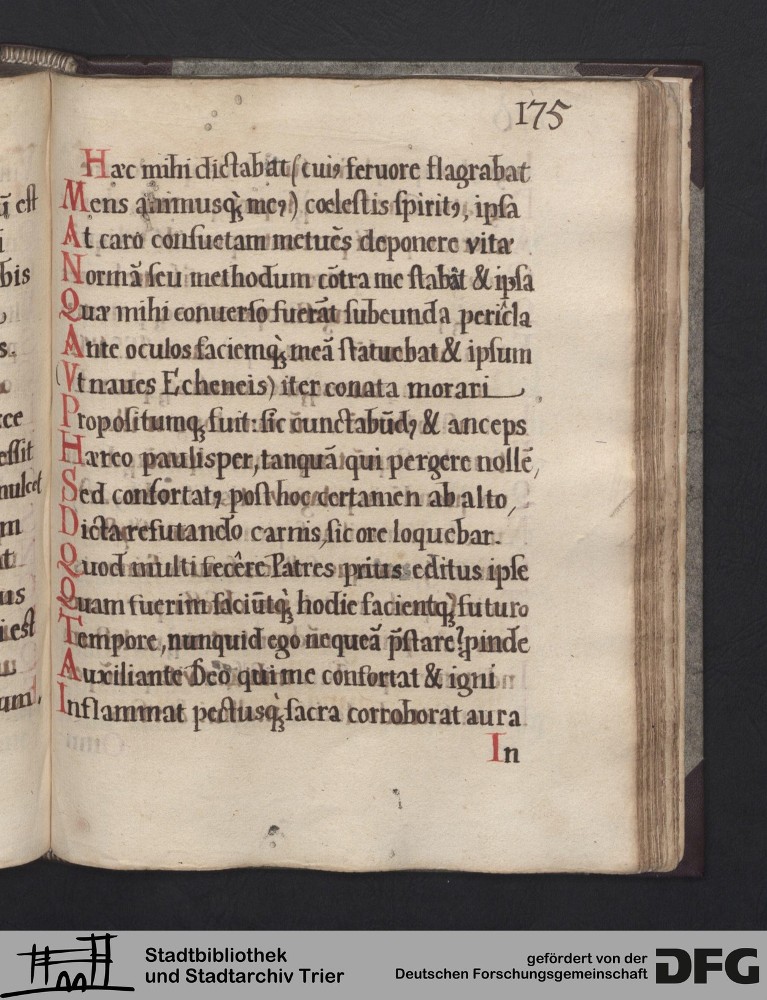 175
Hæc mihi dictabat (cuiꝯ feruore flagrabat
Mens animusq́ꝫ meꝯ) cœlestis spiritꝯ, ipsa
At caro consuetam metuēs deponere vitæ
Normā seu methodum cōtra me stabāt & ipsa
Quæ mihi conuerso fuerāt subeunda pericla
Ante oculos faciemq́ꝫ meā statuebat & ipsum
(Vt naues Echeneis) iter conata morari
Propositumqꝫ fuit: sic cunctabūdꝯ & anceps
Hæreo paulisper, tanquā qui pergere nollē,
Sed confortatꝯ post hoc certamen ab alto,
Dicta refutando carnis, sic ore loquebar.
Quod multi fecêre Patres prius editus ipse
Quam fuerim faciūtq́ꝫ hodie facientqꝫ futuro
Tempore, nunquid ego nequeā p̄stare? pinde
Auxiliante Deo qui me confortat & igni
Inflammat pectusq́ꝫ sacra corroborat aura
In
ū est
bis
s.
ce
essit
mulcet
m
at
us
i est
um,
Stadtbibliothek
und Stadtarchiv Trier
gefördert von der
Deutschen Forschungsgemeinschaft
DFG